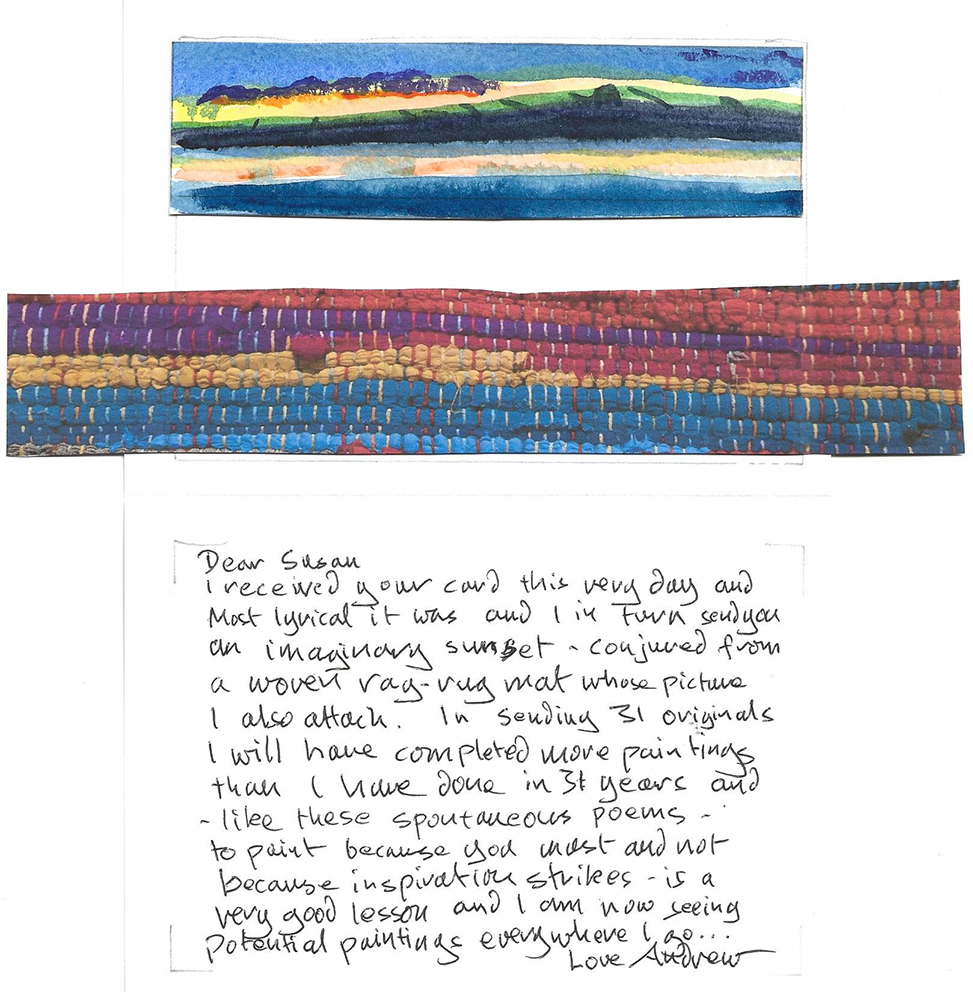 Dear Susan
I received your card this very day and
Most lyrical it was and I in turn send you
an imaginary sunset - conjured from
a woven rag-rug mat whose picture
I also attach. In sending 31 originals
I will have completed more paintings
than I have done in 31 years and
- like these spontaneous poems -
to paint because you must and not
because inspiration strikes - is a
very good lesson and I am now seeing
potential paintings everywhere I go...
Love Andrew